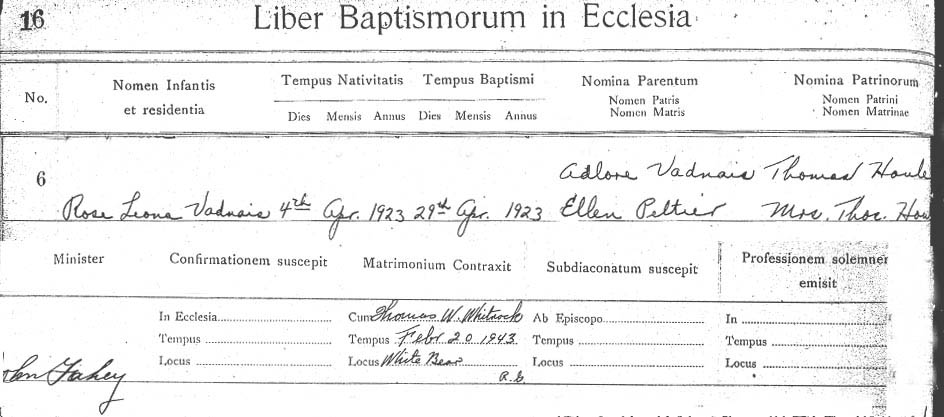 16
Liber Baptismorum in Ecclesia
No.
Nomen Infantis
et residentia
Tempus Nativitatis
Dies Mensis Annus
Tempus Baptismi
Dies Mensis Annus
Nomina Parentum
Nomen Patris
Nomen Matris
Nomina Patrinorum
Nomen Patrini
Nomen Matrinae
6
Adlore Vadnais Thomas
Rose Leona Vadnais 4th Apr. 1923 29th Apr. 1923 Ellen Peltier Mrs. Thos.
Minister
Confirmationem suscepit
Matrimonium Contraxit
Subdiaconatum suscepit
Professionem solemner
emisit
In Ecclesia
Cum Thomas W. Whitrock
Ab Episcopo
In
Tempus
Tempus Febr 20 1943
Tempus
Tempus
Locus
Locus White Bear
Locus
Locus
Fahey